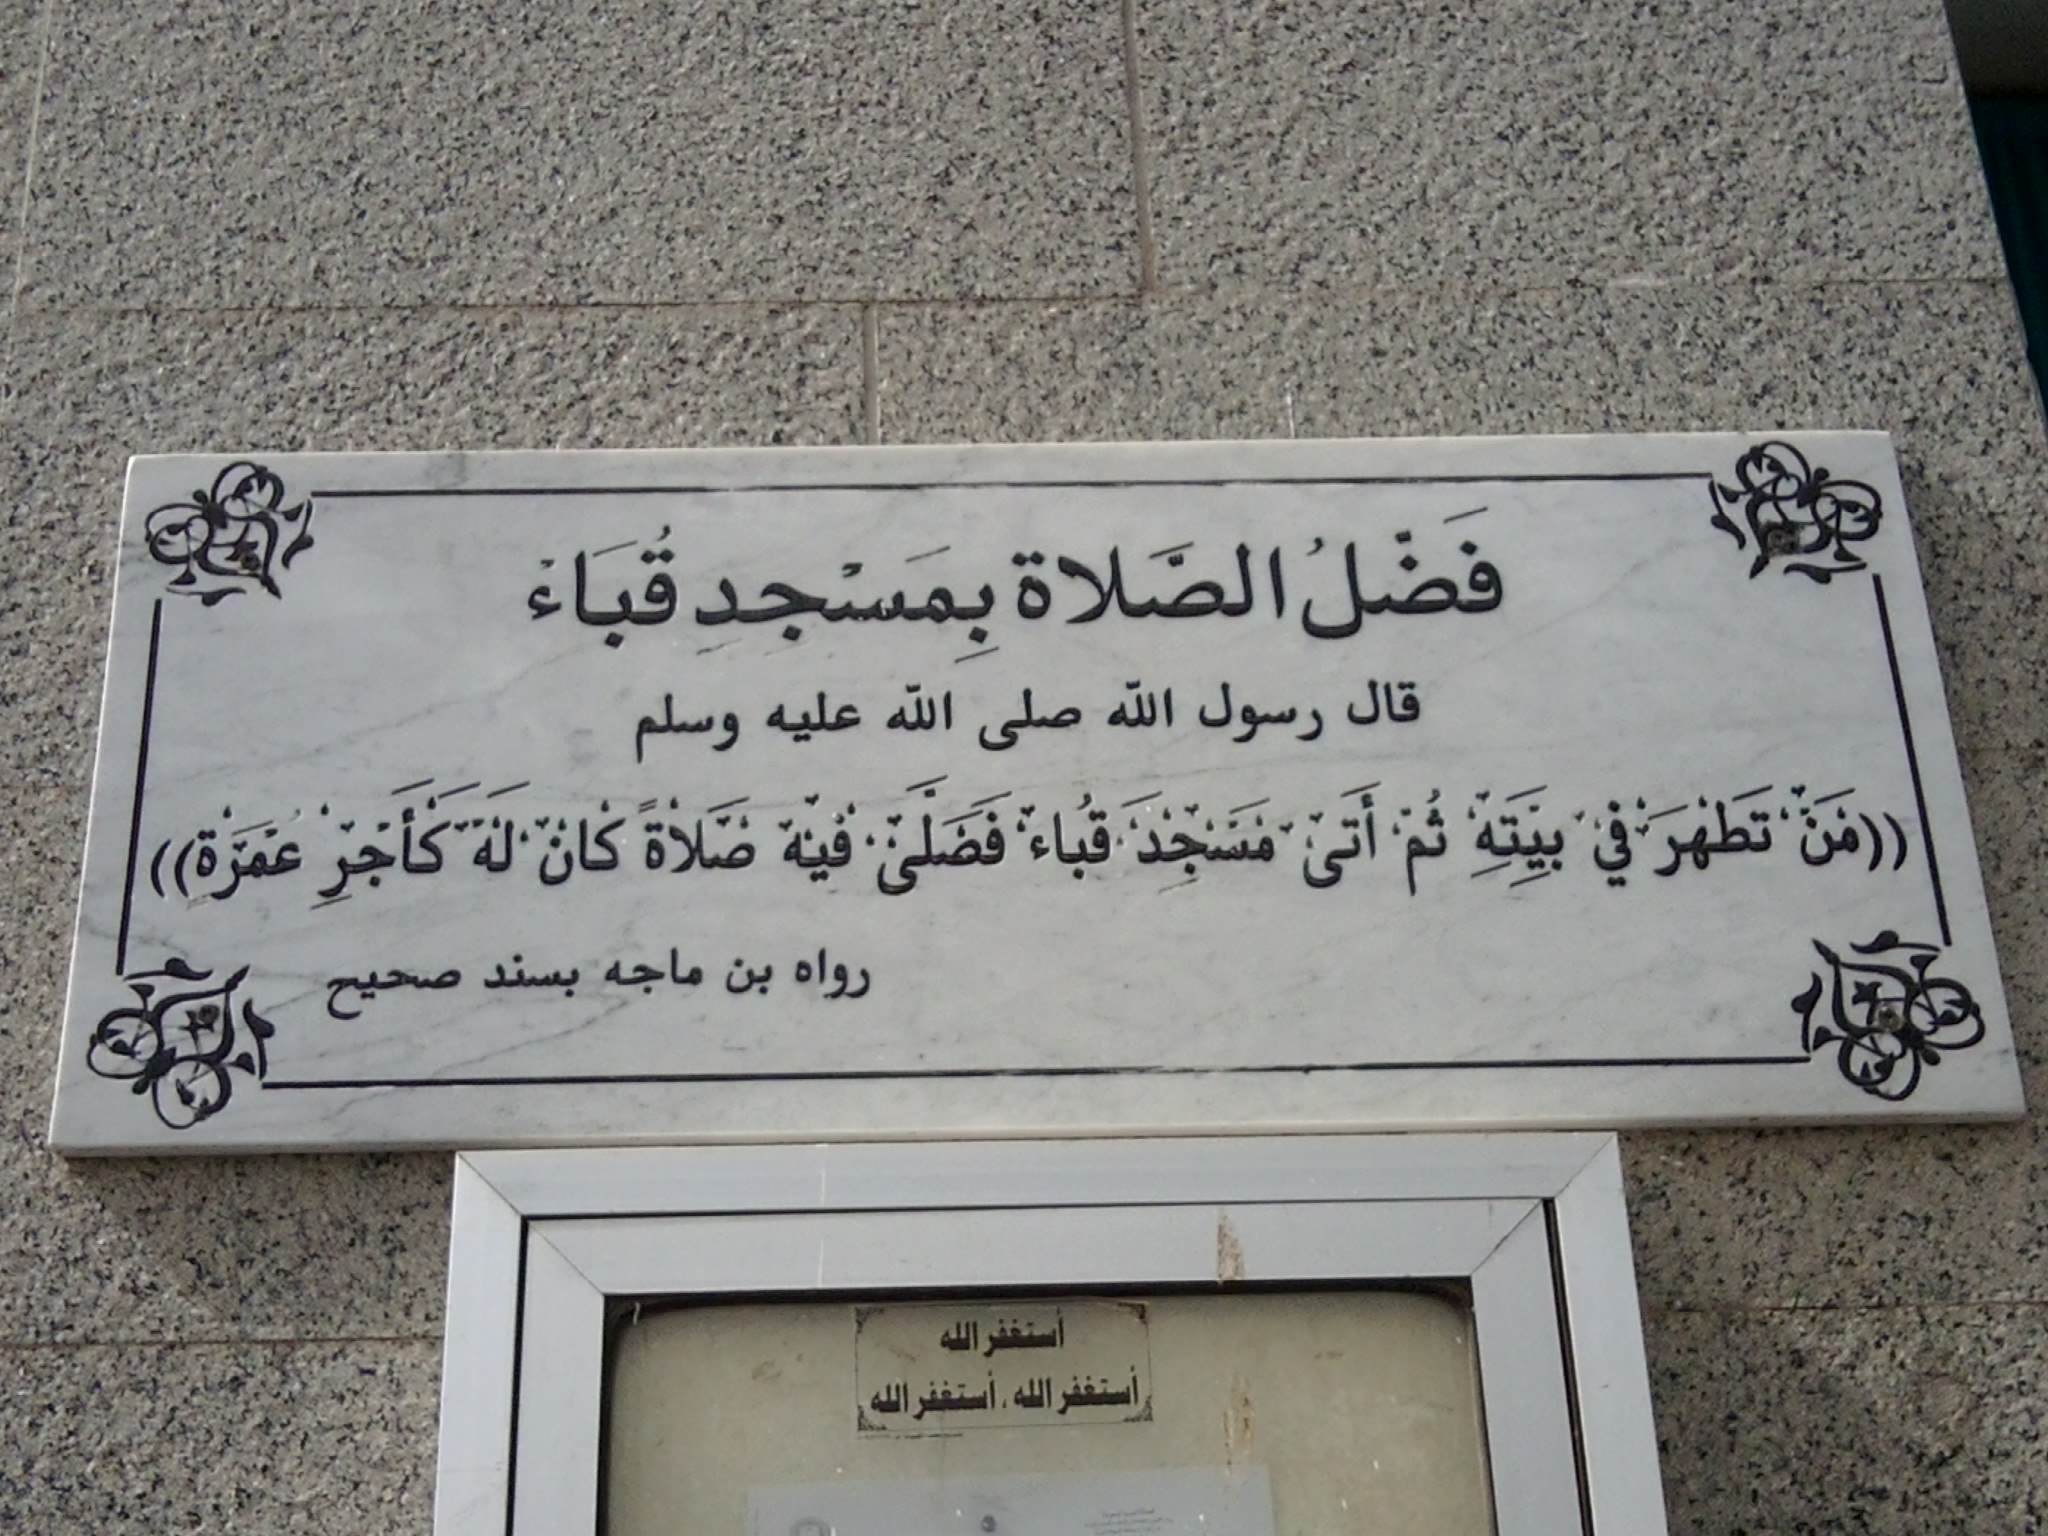 فَضْلُ الصَّلاة بِمَسْجِدِ قُبَاءْ
قال رسول الله صلى الله عليه وسلم
((مَنْ تَطَهَرَ في بيَتِهِ ثُمْ أَتىَ مَسْجِدَ قُباءَ فَصَلَّىَ فيْه صَلاةً كَانَ لَهَ كَأَجْرِ عُمْرَةِ))
رواه بن ماجه بسند صحيح
أستغفر الله
أستغفر الله ، أستغفر الله